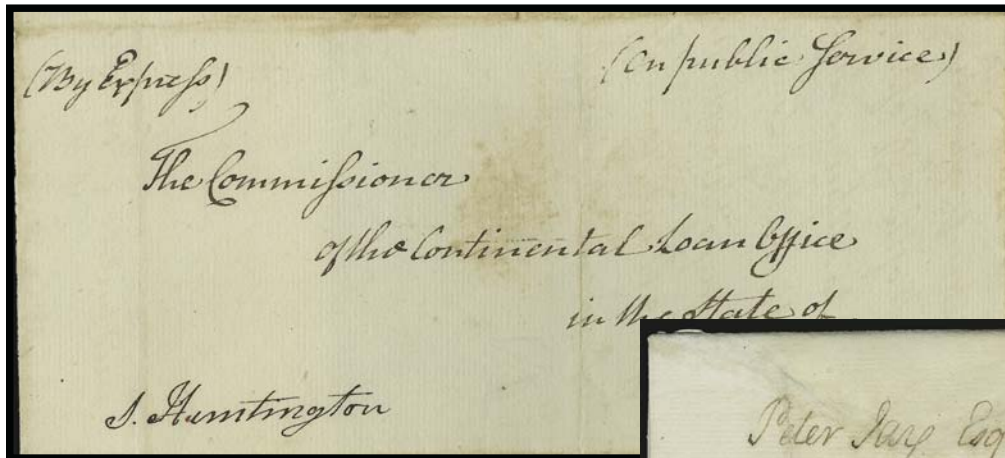 (By Express)
(On public Service)
The Commissioner
of the Continental Loan Office
in the State of
S. Huntington
Peter Jay Esq